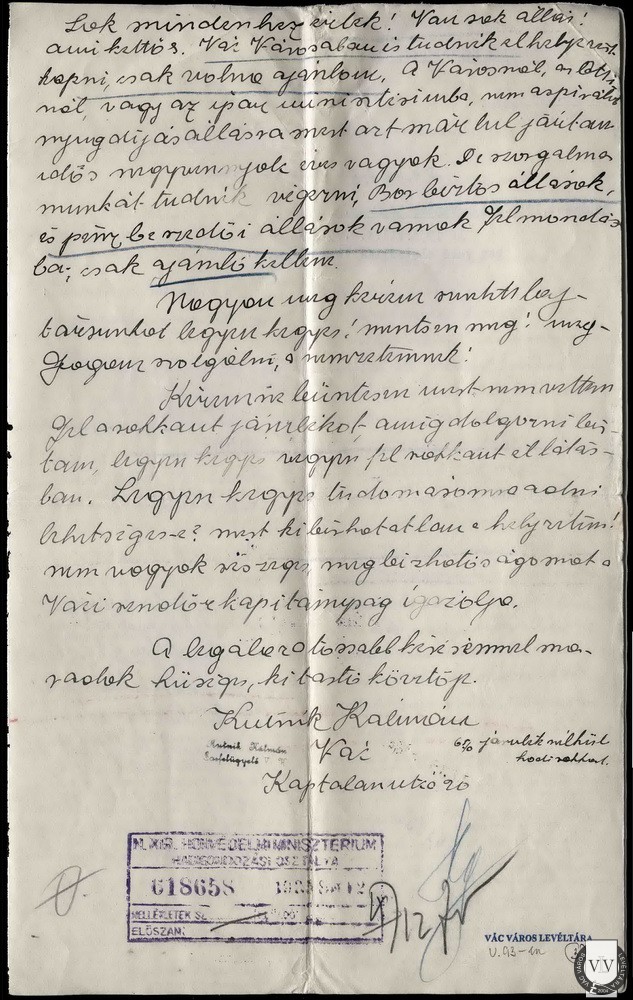 Sok mindenhez értek! Van sok állás!
ami kettős. Vác Városában is tudnék elhelyezést
kapni, csak volna ajánlom. A Városnál, az
nál, vagy az ipar miniszteriumba, nem aspirálok
nyugdijas állásra mert azt már túl jártam
idős negyvennyolc éves vagyok. De szorgalmas
munkát tudnék végezni, Bor biztos állások,
és pénz beszedői állások vannak
ba; csak ajánló kellene.
Nagyon meg kérem méltós baj-
társunkat legyen kegyes! mentsen meg! meg-
fogom szolgálni, a nemzetemnek!
Kérem ne büntessen mert nem vettem
fel a rokkant járulékot, amig dolgozni bir-
tam, legyen kegyes vegyen fel rokkant ellátás-
ban. Legyen kegyes tudomásomra adni
lehetséges-e? mert kibirhatatlan a helyzetem!
nem vagyok részeges, megbizhatóságomat a
Váci rendőrkapitányság igazolja.
A legalázatosabb kérésemmel ma-
radok hűséges, kitartó követője.
Kutnik Kálmán
Kutnik Kálmán
Vác
járulék nélküli
hadirokkant.
Káptalan utca
M. KIR. HONVÉDELMI MINISZTÉRIUM
HADIGONDOZÁSI OSZTÁLYA
618658
MELLÉKLETEK SZ
ELŐSZÁM:
VÁC VÁROS LEVÉLTÁRA
V. 93-
VÁC VÁROS LEVÉLTÁRA